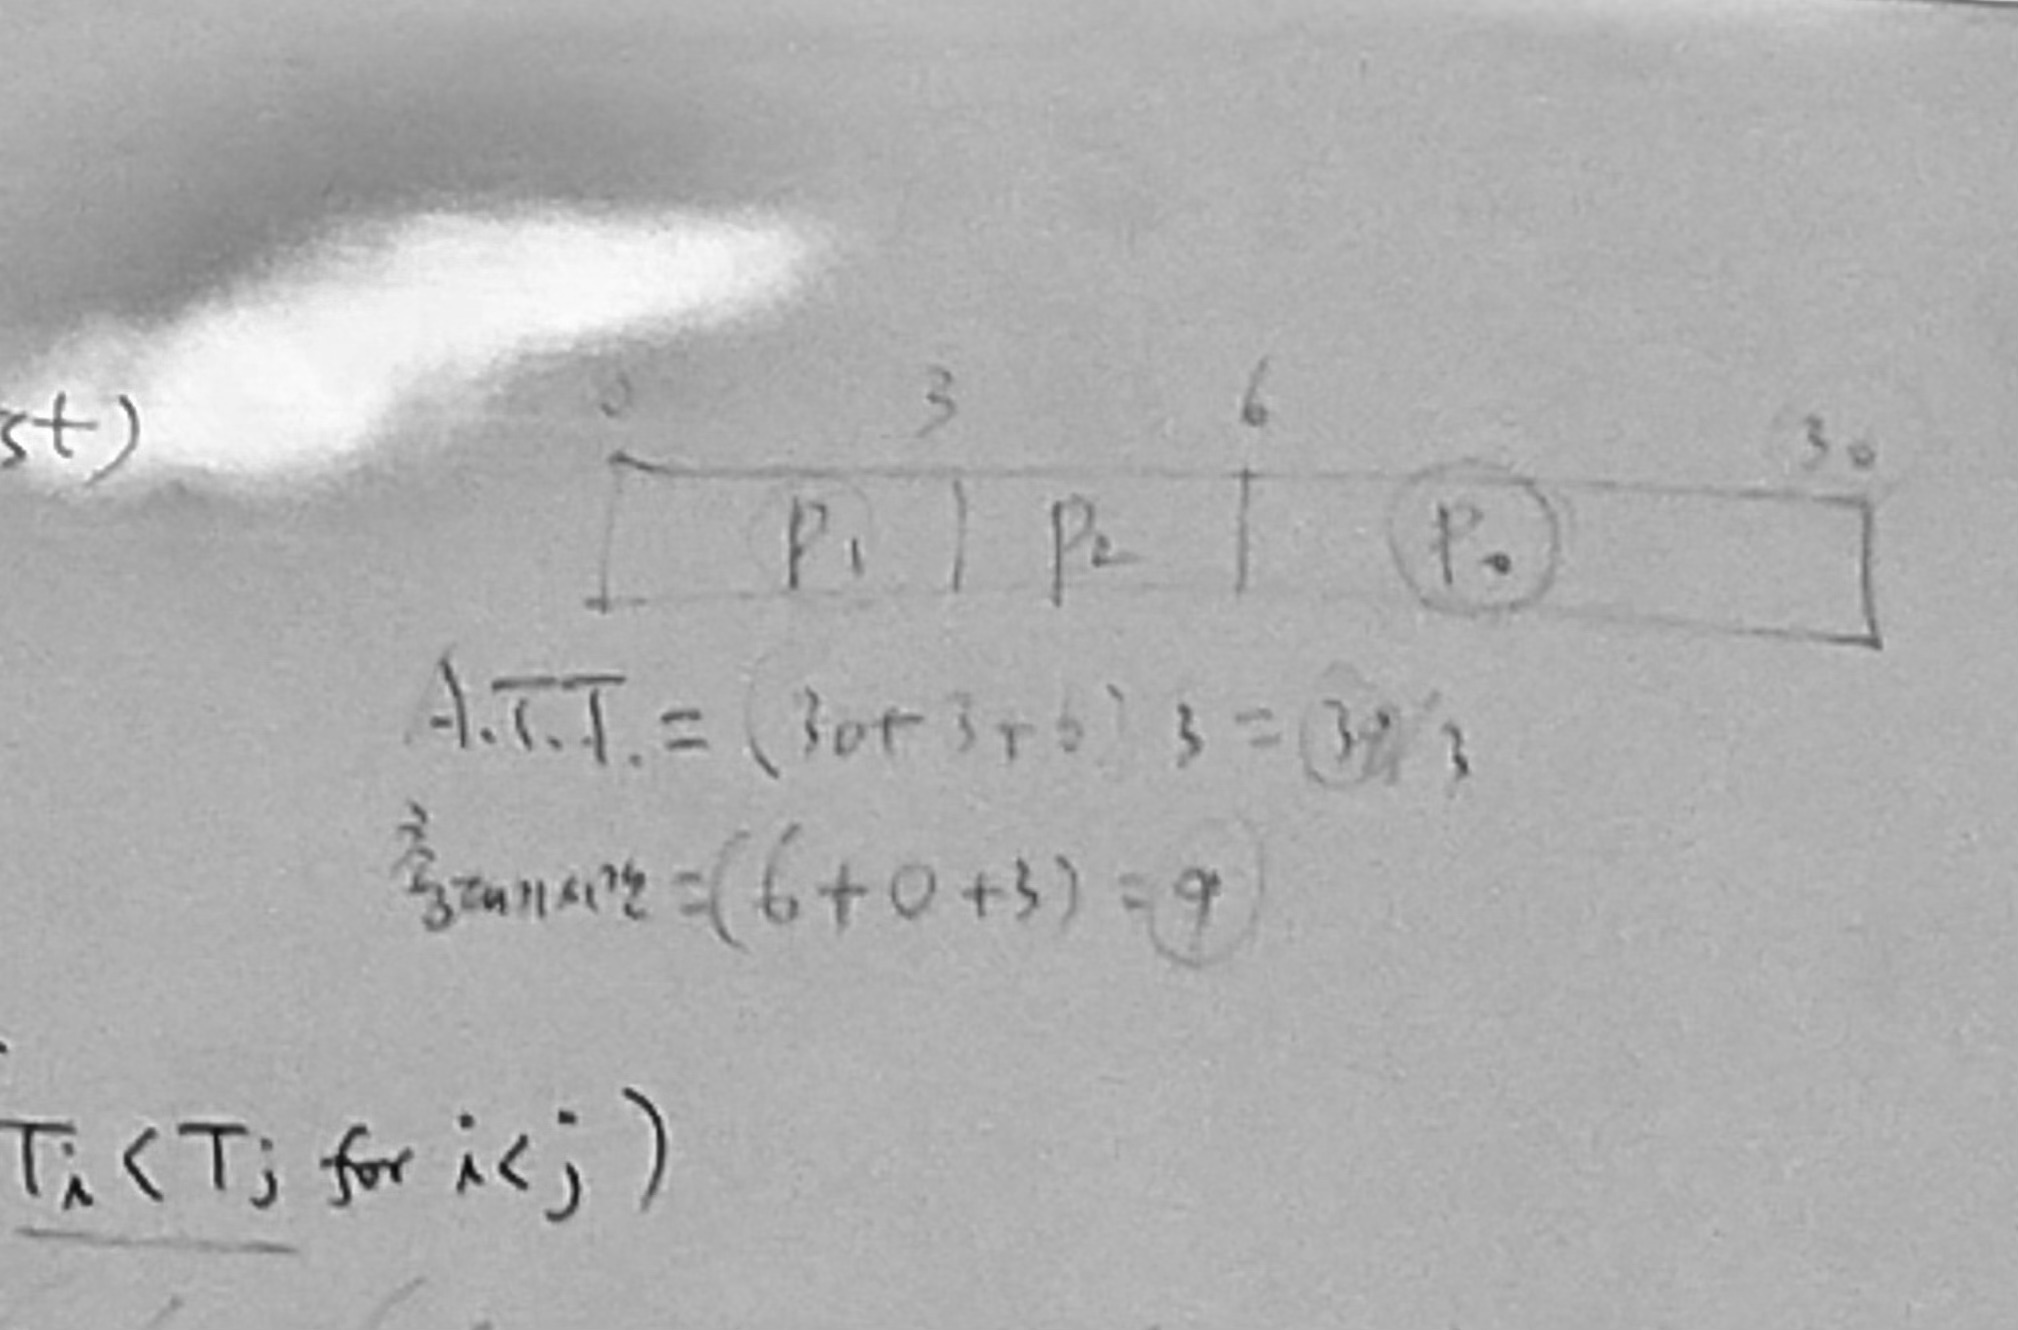 st)
0 3 6 30
P1 P2 P0
A.T.T. = (30+3+6) 3 = 39/3
총 대기시간 = (6+0+3) = 9
Ti < Tj for i<j )